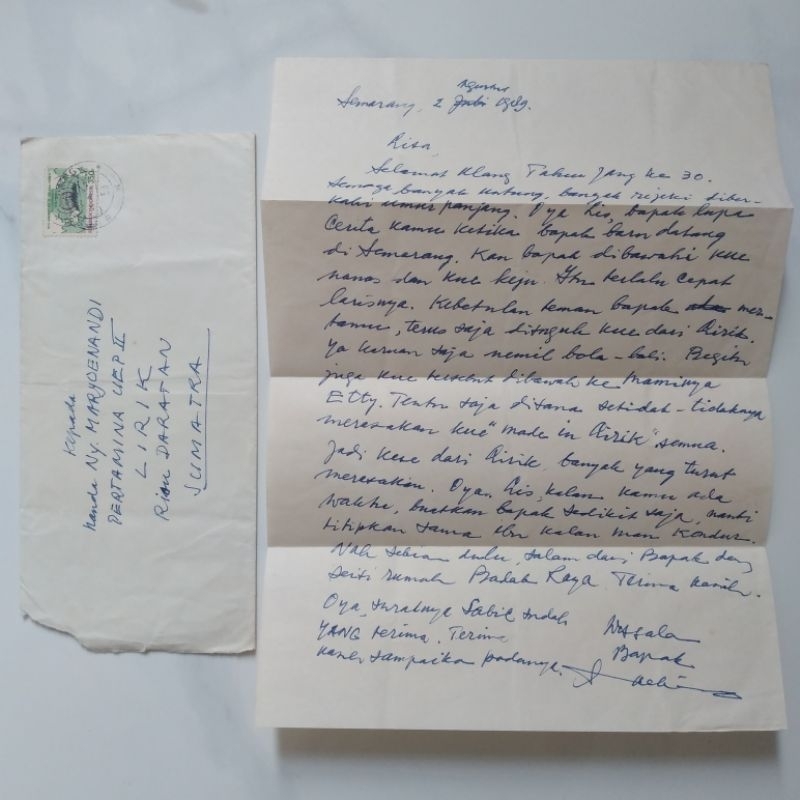 Kepada
Nanda Ny. MARYOENANDI
PERTAMINA UEP II
LIRIK
Riau DARATAN
SUMATRA
Agustus
Semarang, 2 Juli 1989.
Risa,
Selamat Ulang Tahun yang ke 30.
Semoga banyak untung, banyak rejeki diber-
kahi umur panjang. Oya Lis, bapak lupa
cerita kamu ketika bapak baru datang
di Semarang. Kan bapak dibawahi kue
nanas dan kue keju. Itu terlalu cepat
larisnya. Kebetulan teman bapak mer-
tamu, terus saja disuguh kue dari Lirik.
Ya karuan saja nemil bola-bali. Begitu
juga kue tersebut dibawah ke Maminya
Etty. Tentu saja disana setidak-tidaknya
merasakan kue "made in Lirik" semua.
Jadi kue dari Lirik, banyak yang turut
merasakan. Oya Lis, kalau kamu ada
waktu, buatkan bapak sedikit saja, nanti
titipkan sama ibu kalau mau kondur.
Nah sekian dulu, salam dari Bapak dan
seisi rumah Badak Raya. Terima kasih.
Oya, suratnya Sabil sudah
YANG terima. Terima
kasih sampaikan padanya.
Wassala
Bapak